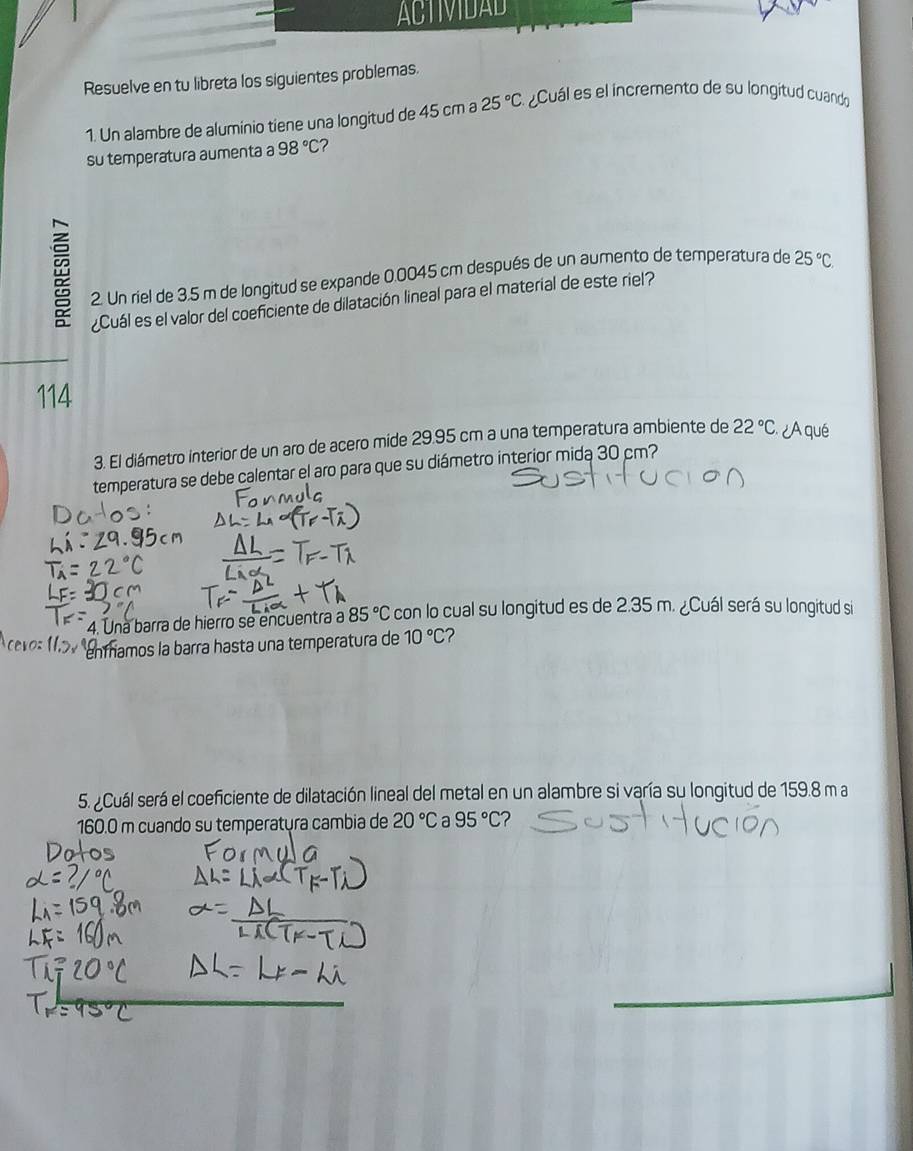 ACTIVIDAD
Resuelve en tu libreta los siguientes problemas.
1. Un alambre de aluminio tiene una longitud de 45 cm a 25 °C. ¿Cuál es el incremento de su longitud cuando
su temperatura aumenta a 98 °C?
PROGRESIÓN 7
2. Un riel de 3.5 m de longitud se expande 0.0045 cm después de un aumento de temperatura de 25 °C.
¿Cuál es el valor del coeficiente de dilatación lineal para el material de este riel?
114
3. El diámetro interior de un aro de acero mide 29.95 cm a una temperatura ambiente de 22 °C. ¿A qué
temperatura se debe calentar el aro para que su diámetro interior mida 30 cm?
Sustitucion
Datos:
Formula
Li = 29.95 cm
ΔL = Li α(TF-Ti)
Ti = 22°C
ΔL/Liα = TF - Ti
LF = 30 cm
TF = ΔL/Liα + Ti
TF = ?°C
4. Una barra de hierro se encuentra a 85 °C con lo cual su longitud es de 2.35 m. ¿Cuál será su longitud si
enfriamos la barra hasta una temperatura de 10 °C?
5. ¿Cuál será el coeficiente de dilatación lineal del metal en un alambre si varía su longitud de 159.8 m a
160.0 m cuando su temperatura cambia de 20 °C a 95 °C?
Sustitución
Datos
Formula
α = ?/°C
ΔL = Liα(TF-Ti)
Li = 159.8m
α = ΔL/Li(TF-Ti)
LF = 160m
Ti = 20°C
ΔL = LF - Li
TF = 95°C